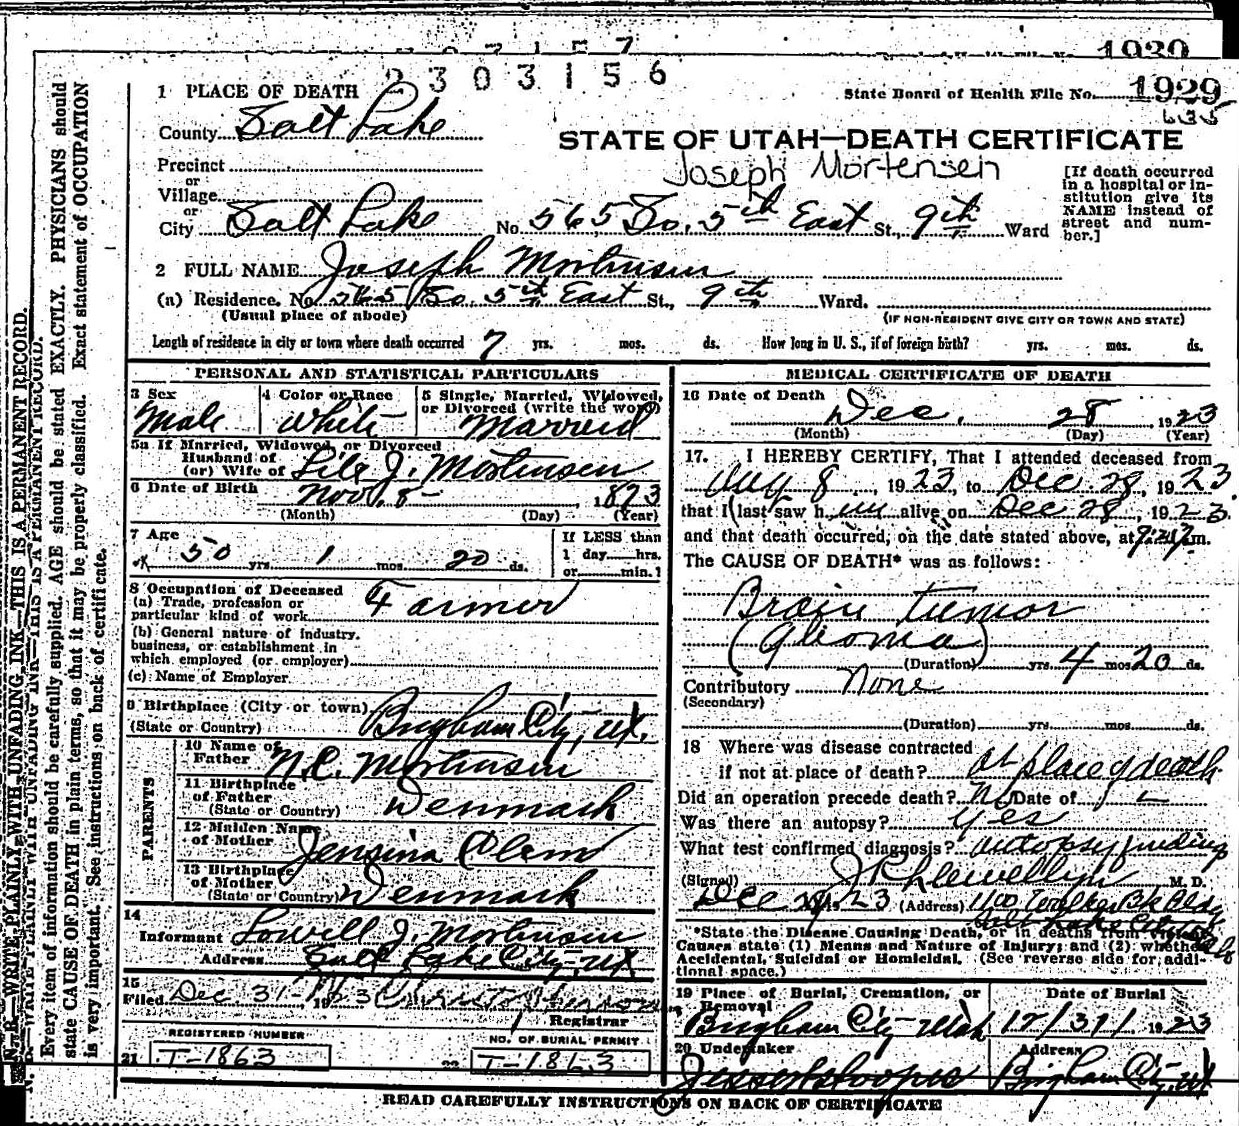 1929
2303156
State Board of Health File No. 1929
635
1 PLACE OF DEATH
County Salt Lake
STATE OF UTAH—DEATH CERTIFICATE
Joseph Mortensen
Precinct
or
Village
or
City Salt Lake No. 565 So. 5th East St., 9th Ward
[If death occurred in a hospital or institution give its NAME instead of street and number.]
2 FULL NAME Joseph Mortensen
(a) Residence. No. 565 So. 5th East St., 9th Ward.
(Usual place of abode) (IF NON-RESIDENT GIVE CITY OR TOWN AND STATE)
Length of residence in city or town where death occurred 7 yrs. mos. ds. How long in U. S., if of foreign birth? yrs. mos. ds.
PERSONAL AND STATISTICAL PARTICULARS
3 Sex Male
4 Color or Race White
5 Single, Married, Widowed, or Divorced (write the word) Married
5a If Married, Widowed, or Divorced
Husband of
(or) Wife of J. Mortensen
6 Date of Birth Nov. 8 1873
(Month) (Day) (Year)
7 Age 50 yrs. 1 mos. 20 ds.
If LESS than 1 day......hrs. or......min.
8 Occupation of Deceased
(a) Trade, profession or particular kind of work Farmer
(b) General nature of industry, business, or establishment in which employed (or employer)
(c) Name of Employer
9 Birthplace (City or town)
(State or Country) Brigham City, Ut.
PARENTS
10 Name of Father N.C. Mortensen
11 Birthplace of Father
(State or Country) Denmark
12 Maiden Name of Mother Jensina
13 Birthplace of Mother
(State or Country) Denmark
14
Informant Lowell J. Mortensen
Address Salt Lake City, Ut
15
Filed Dec 31- 1923
Registrar
REGISTERED NUMBER
21 T-1863
NO. OF BURIAL PERMIT
22 T-1863
MEDICAL CERTIFICATE OF DEATH
16 Date of Death Dec. 28 1923
(Month) (Day) (Year)
17. I HEREBY CERTIFY, That I attended deceased from
Aug 8, 1923, to Dec 28, 1923
that I last saw him alive on Dec 28, 1923.
and that death occurred, on the date stated above, at m.
The CAUSE OF DEATH* was as follows:
Brain tumor
(Glioma)
(Duration) yrs. 4 mos 20 ds.
Contributory None
(Secondary)
(Duration) yrs. mos. ds.
18 Where was disease contracted
if not at place of death? at place of death
Did an operation precede death? No Date of
Was there an autopsy? Yes
What test confirmed diagnosis? autopsy finding
(Signed) J P Llewellyn M. D.
Dec 1923 (Address) 1100 Walker Bk Bldg
Salt Lake City
*State the Disease Causing Death, or in deaths from Violent Causes state (1) Means and Nature of Injury; and (2) whether Accidental, Suicidal or Homicidal. (See reverse side for additional space.)
19 Place of Burial, Cremation, or Removal
Brigham City Utah
Date of Burial
12/31/1923
20 Undertaker
Address
Brigham City, Ut
READ CAREFULLY INSTRUCTIONS ON BACK OF CERTIFICATE
N. B.—WRITE PLAINLY WITH UNFADING INK—THIS IS A PERMANENT RECORD.
Every item of information should be carefully supplied. AGE should be stated EXACTLY. PHYSICIANS should
state CAUSE OF DEATH in plain terms, so that it may be properly classified. Exact statement of OCCUPATION
is very important. See instructions on back of certificate.